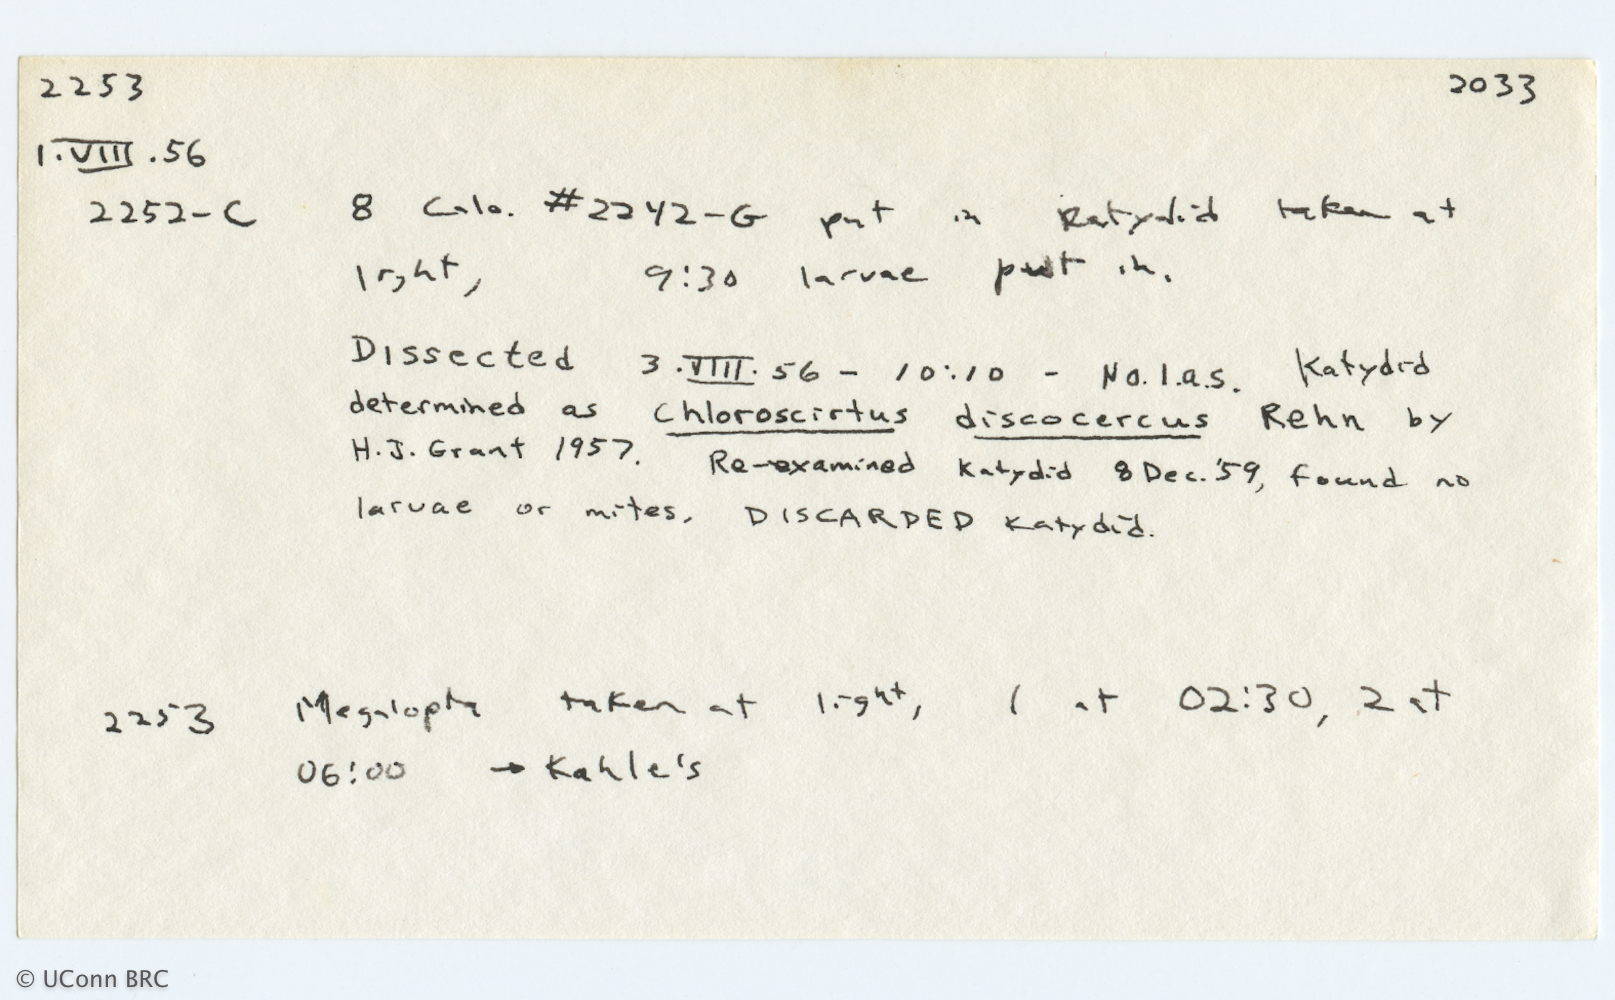 2253 2033
1.VIII.56
2252-C 8 Calo. #2242-G put in Katydid taken at
light, 9:30 larvae put in.
Dissected 3.VIII.56 - 10:10 - No. l.a.s. Katydid
determined as Chloroscirtus discocercus Rehn by
H.J. Grant 1957. Re-examined Katydid 8 Dec. '59, found no
larvae or mites. DISCARDED Katydid.
2253 Megalopta taken at light, 1 at 02:30, 2 at
06:00 → Kahle's
© UConn BRC